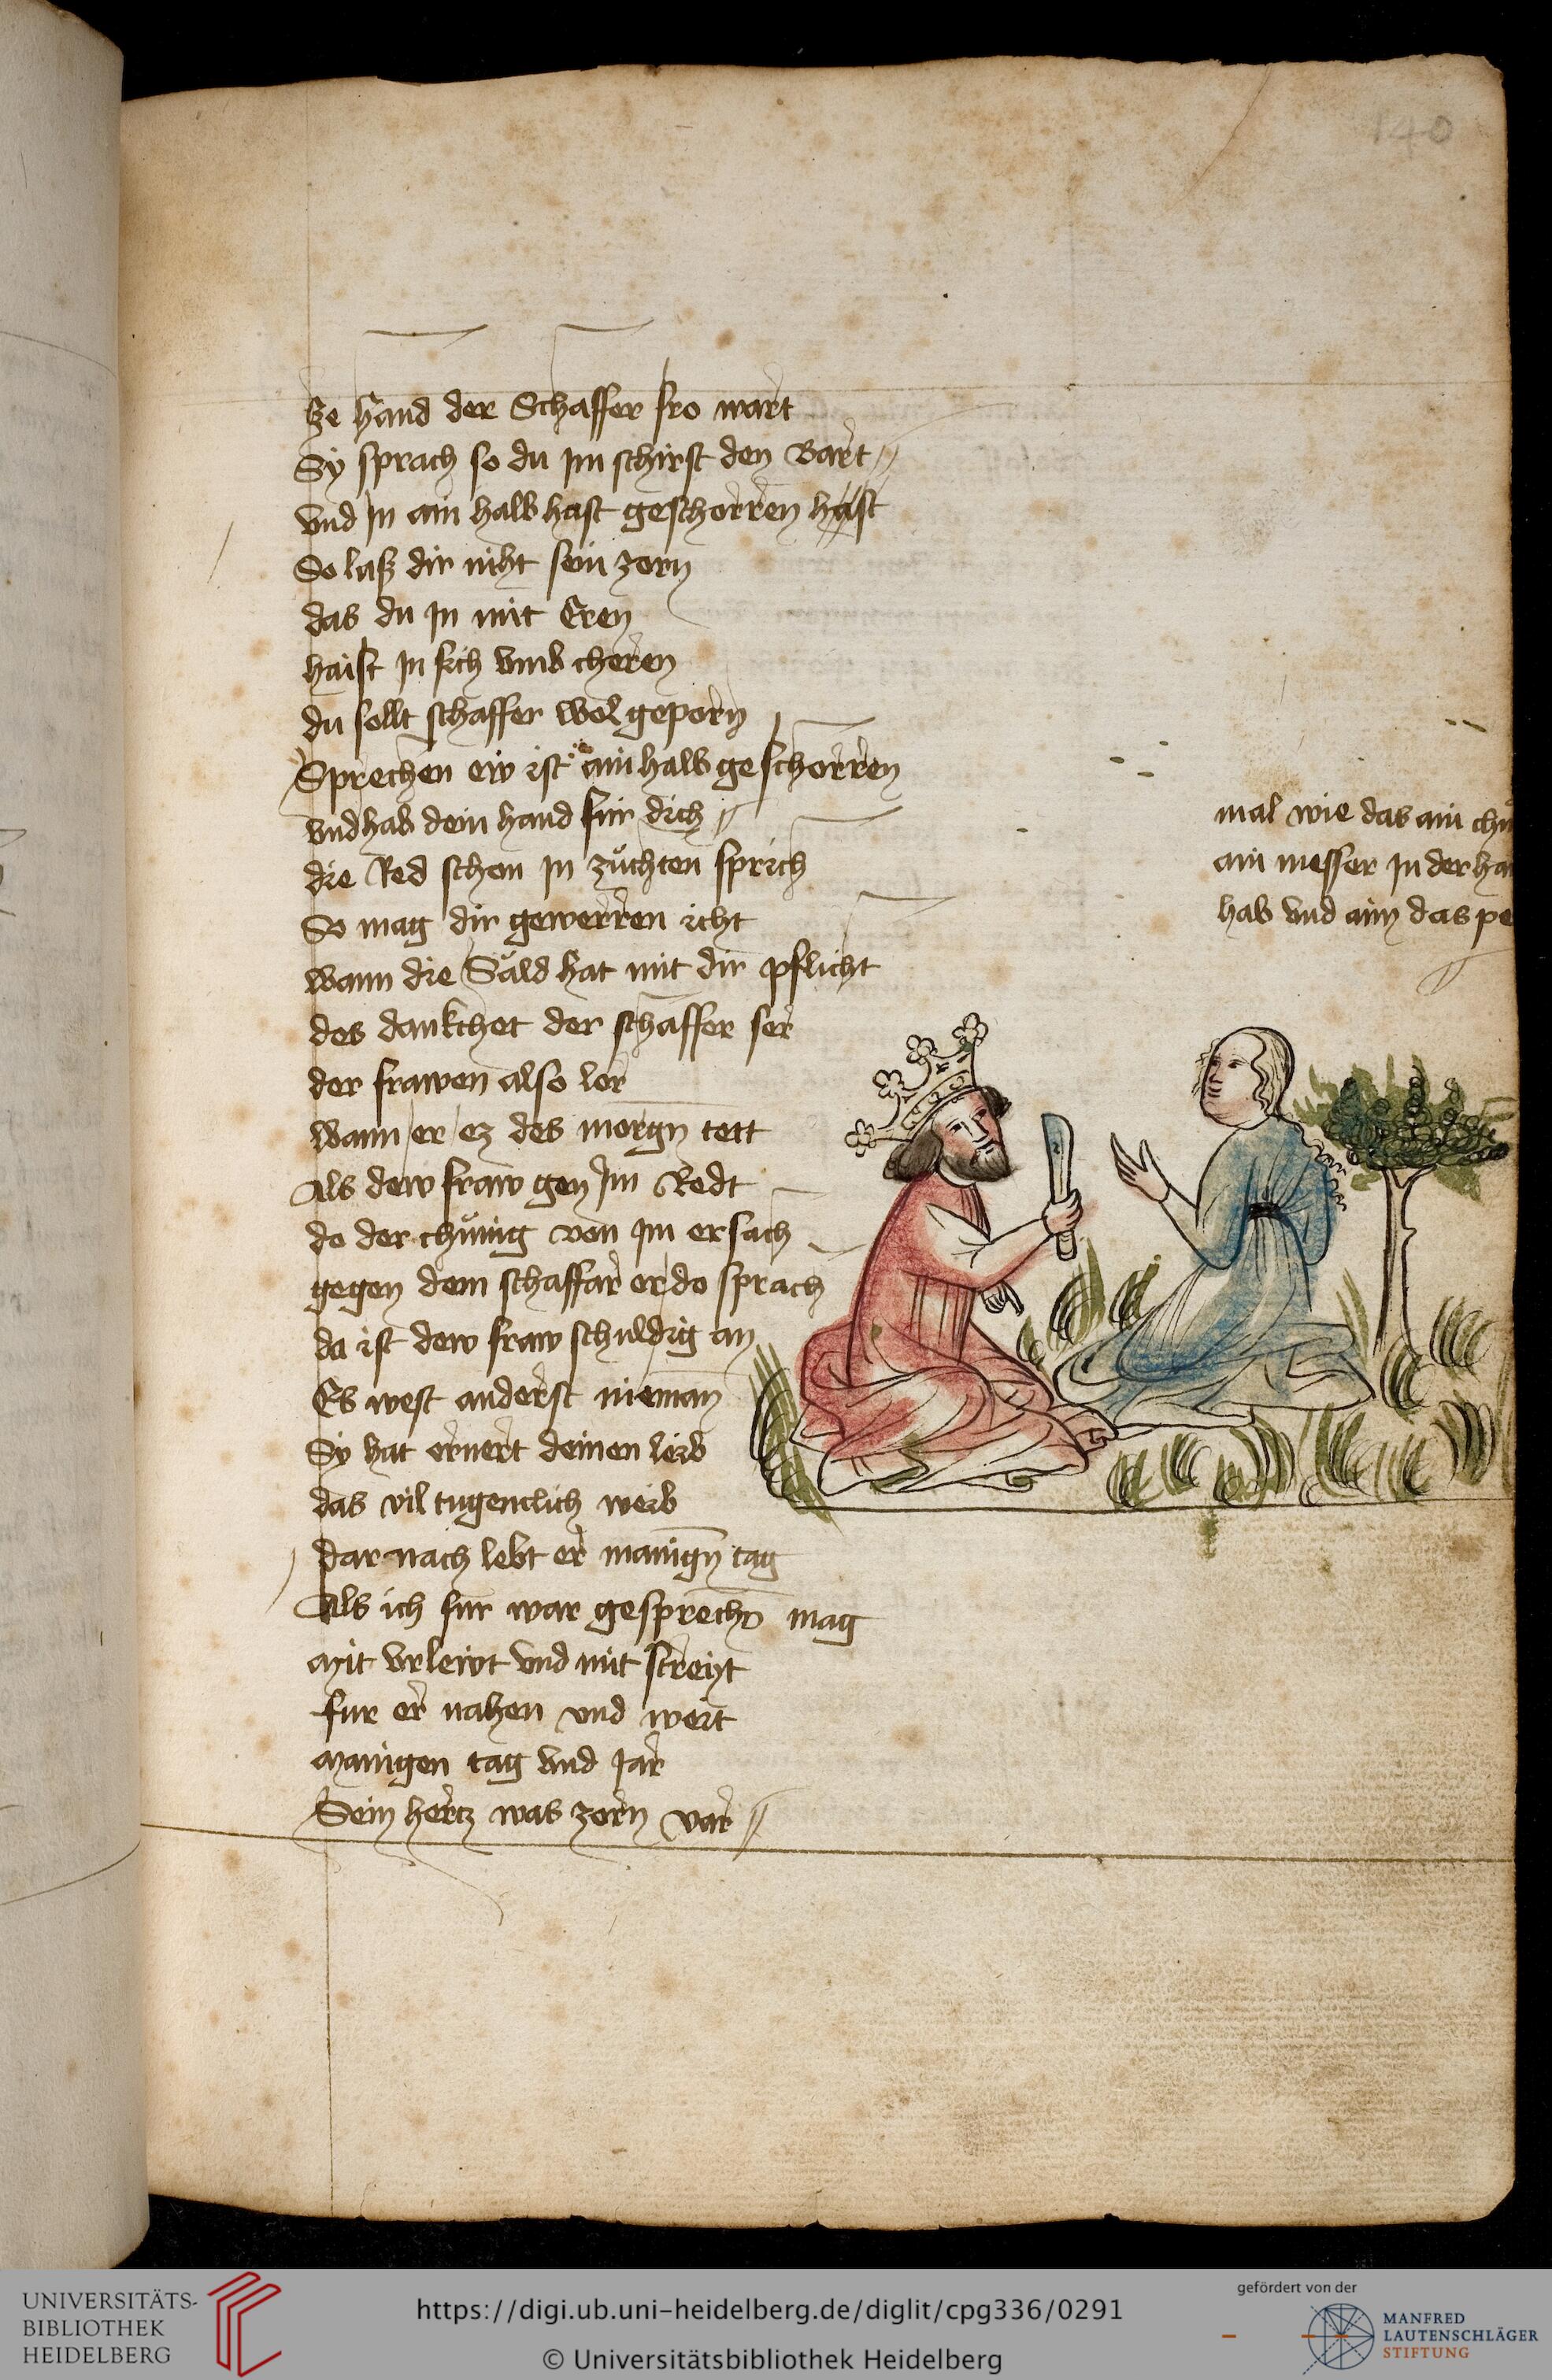 140
ze hand der Schaffer fro wart
Sy sprach so du Im schirst den Bart
vnd In ain halb hast geschorren hast
So lasz dir niht sein zorn
das du In mit Eren
haist In sich vmb cheren
du sollt schaffer wol geporn
Sprechen ew ist ain halb geschorren
vnd hab dein hand für dich
die Red schon In zuͤchten sprich
So mag dir gewerren icht
wann die Saͤld hat mit dir pflicht
des dankchet der schaffer ser
der frawen also ler
Wann er ez des morgn tett
Als dew fraw gen Im Redt
do der chuͤnig von Im ersach
gegen dem schaffar er do sprach
da ist dew fraw schuldig an
Es west anderst nieman
Sy hat ernert deinen leib
das vil tugentlich weib
dar nach lebt er manign tag
Als ich fur war gesprechn mag
Mit vrlewt vnd mit streyt
fur er nahen vnd weit
Manigen tag vnd Jar
Sein hertz was zorn var
mal wie das ain chu
ain messer In der ha
hab vnd aim das pe
UNIVERSITÄTS-
BIBLIOTHEK
HEIDELBERG
https://digi.ub.uni-heidelberg.de/diglit/cpg336/0291
© Universitätsbibliothek Heidelberg
gefördert von der
MANFRED
LAUTENSCHLÄGER
STIFTUNG